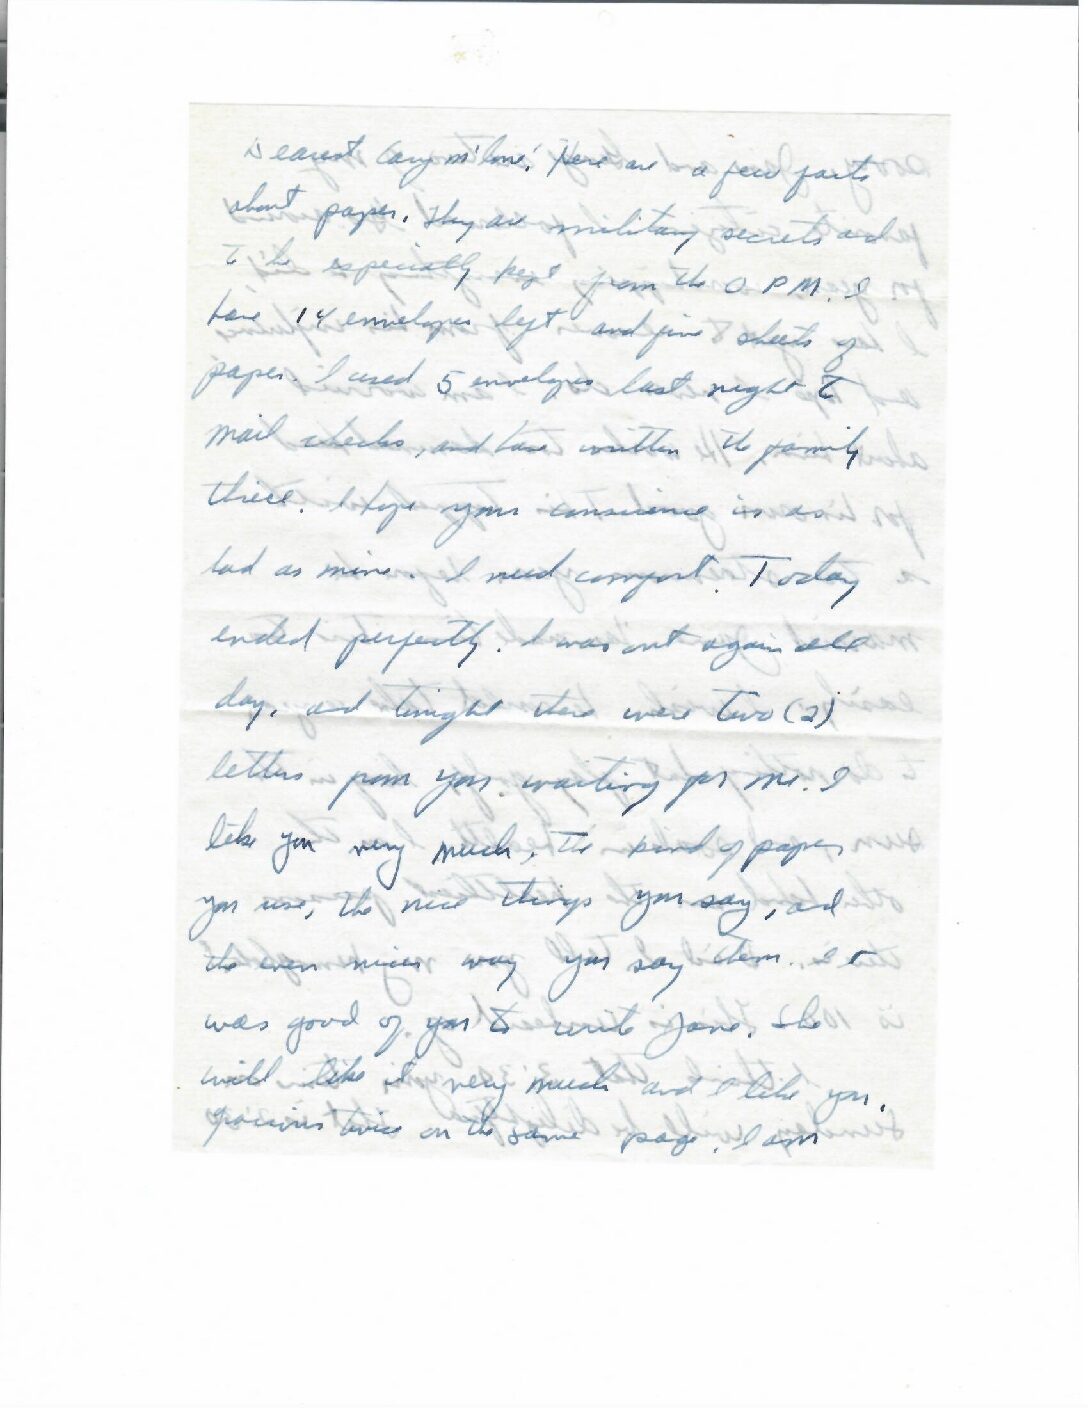 Dearest Cary m'love! Here are a few facts
about paper. They are military secrets and
to be especially kept from the O P M. I
have 14 envelopes left and five sheets of
paper. I used 5 envelopes last night to
mail checks, and have written the family
thrice. I hope your conscience is as
bad as mine. I need comfort. Today
ended perfectly. I was out again all
day, and tonight there were two (2)
letters from you waiting for me. I
like you very much, the kind of paper
you use, the nice things you say, and
the even nicer way you say them. It
was good of you to write Jane. She
will like it very much and I like you.
Gracious twice on the same page. I am